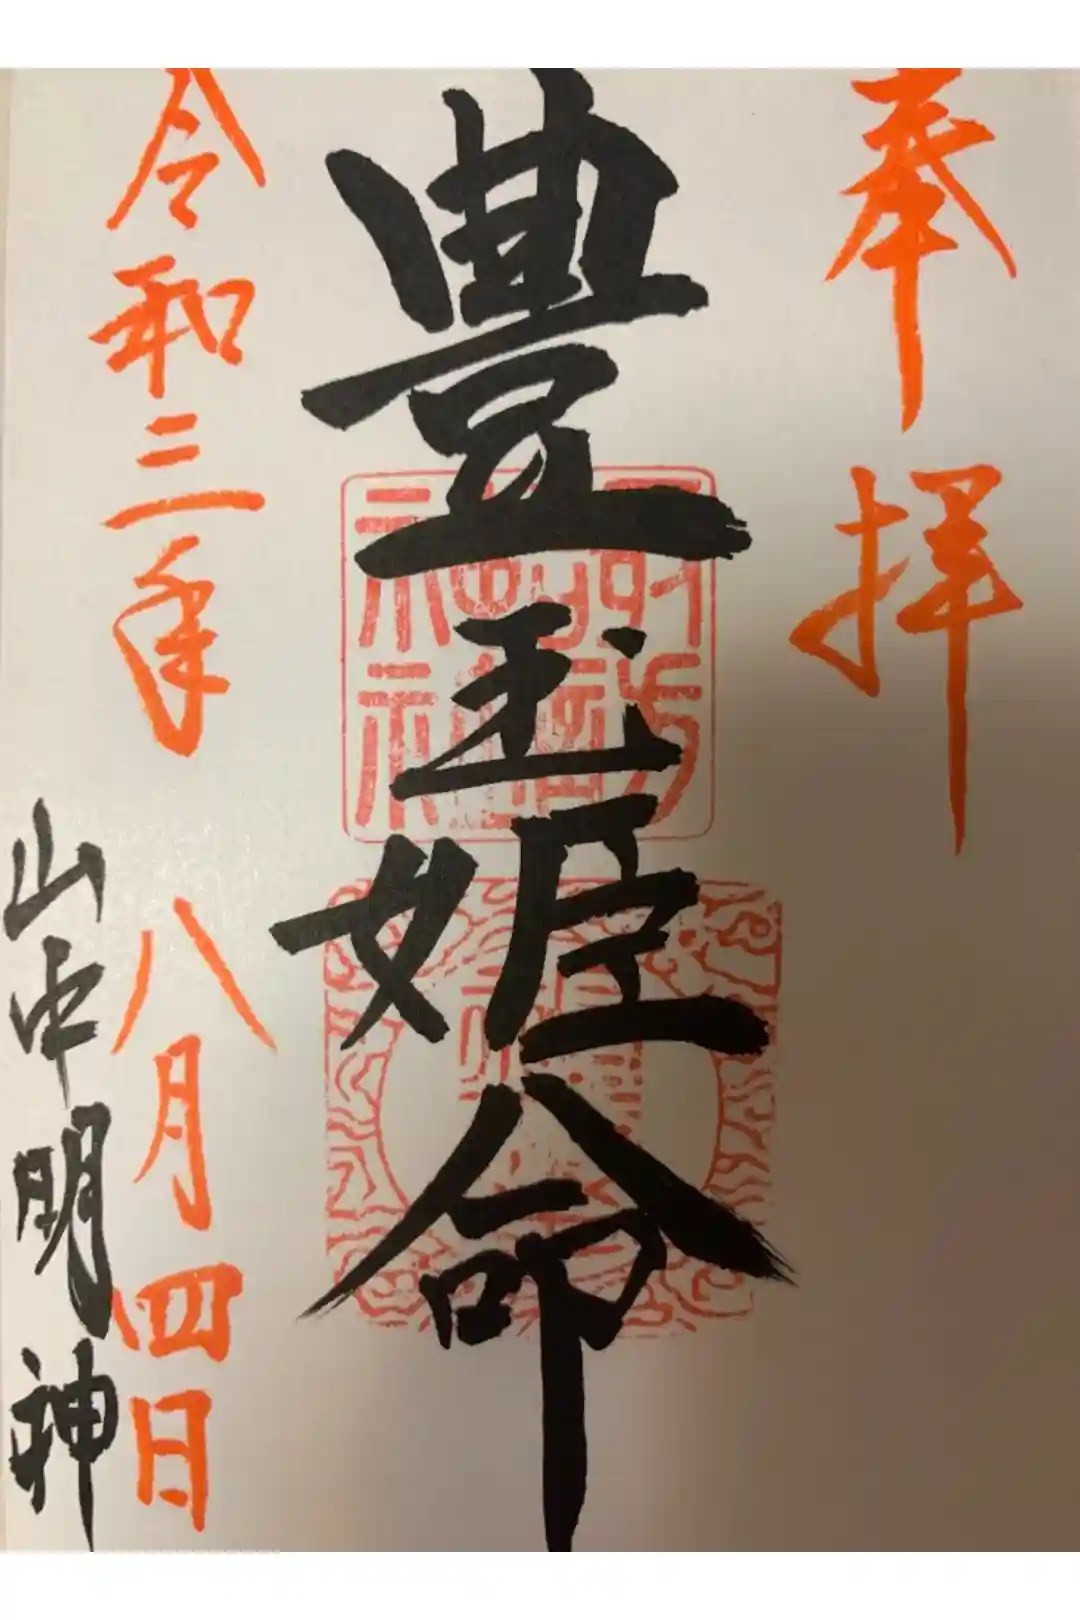 奉拝
豊玉姫命
令和三年 八月四日
山中明神